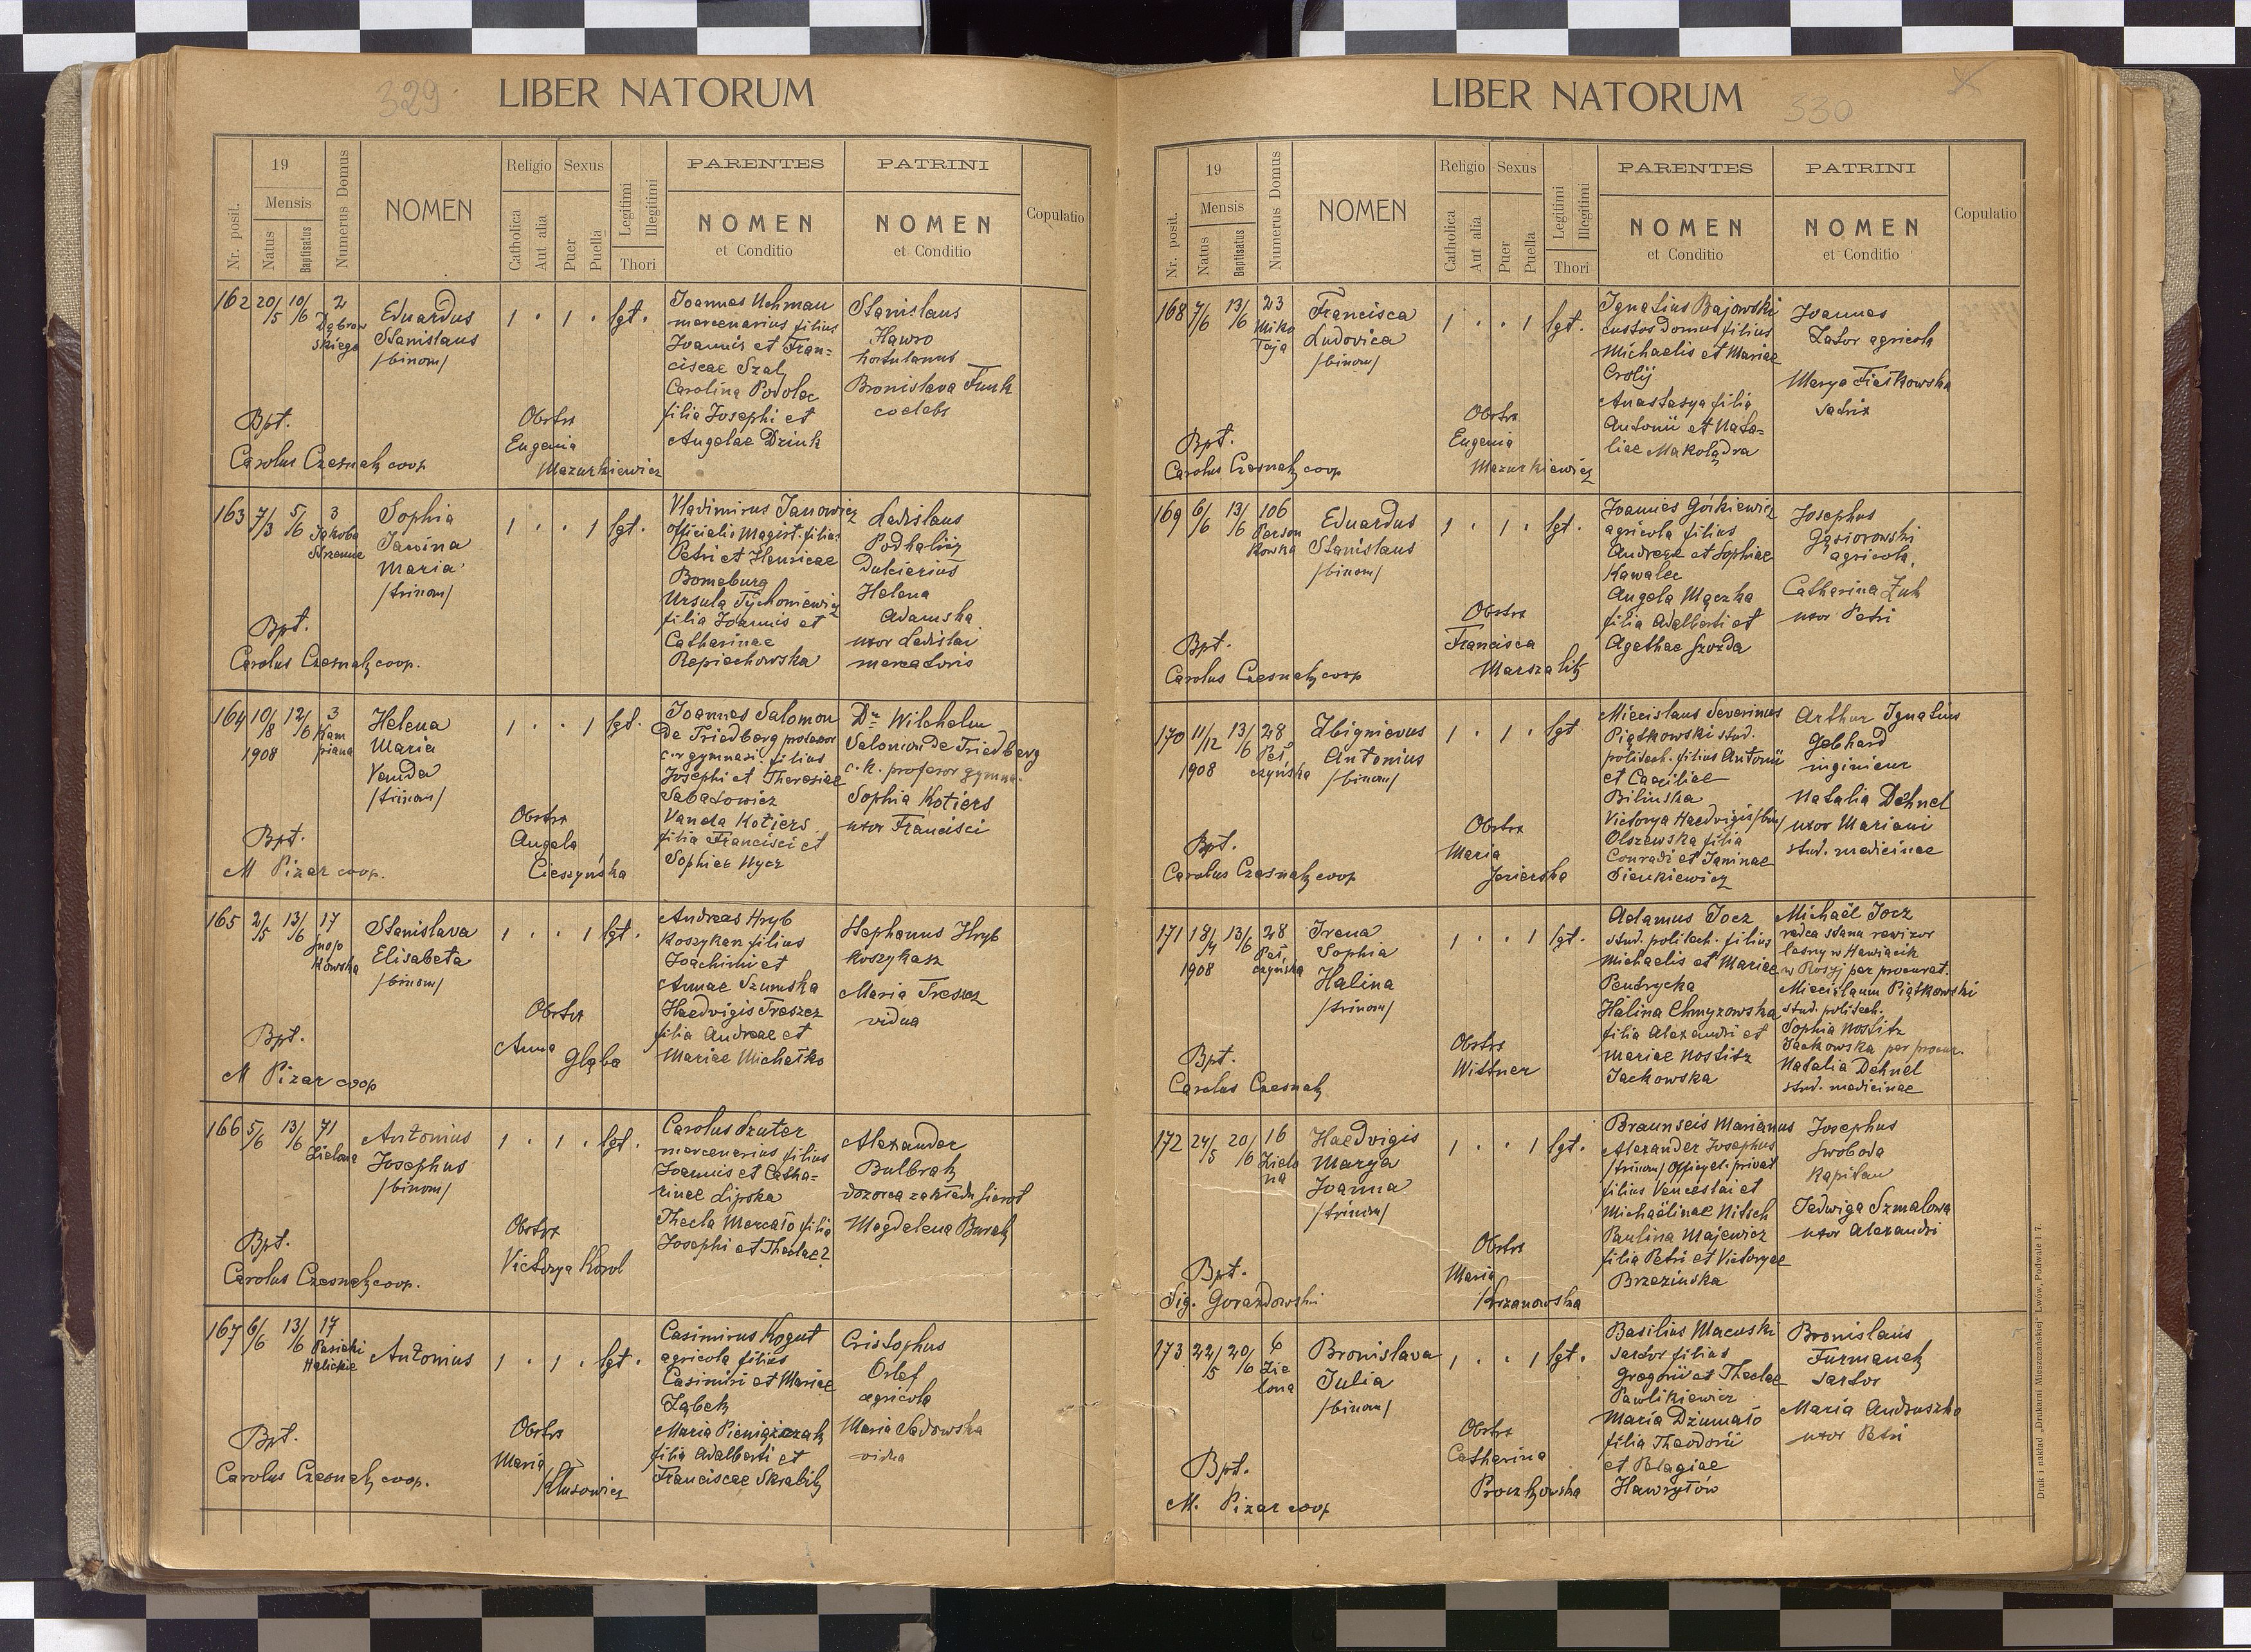 329
LIBER NATORUM
Nr. posit.
19
Mensis
Natus
Baptisatus
Numerus Domus
NOMEN
Religio
Catholica
Aut alia
Sexus
Puer
Puella
Legitimi
Illegitimi
Thori
PARENTES
NOMEN
et Conditio
PATRINI
NOMEN
et Conditio
Copulatio
162 20/5 10/6 2
Dąbrow
skiego
Eduardus
Stanislaus
/binom/
1 . 1 . lgt.
Joannes Uchman
mercenarius filius
Joannis et Fran=
ciscae Szaly
Carolina Podolec
filia Josephi et
Angelae Dziuk
Stanislaus
Hawro
hortulanus
Bronislava Funk
coelebs
Obstrx
Eugenia
Mazurkiewicz
Bpt.
Carolus Czesnak coop
163 7/3 5/6 3
Jakoba
Strzemie
Sophia
Janina
Maria
/trinom/
1 . . 1 lgt.
Vladimirus Janowicz
officialis Magist. filius
Petri et Henricae
Bomeburg
Ursula Tychoniewicz
filia Joannis et
Catharinae
Repiechowska
Ladislaus
Podhalicz
Dulciarius
Helena
Adamska
uxor Ladislai
mercatoris
Bpt.
Carolus Czesnak coop.
164 10/8 12/6 3
1908
Kam
piana
Helena
Maria
Vanda
/trinom/
1 . . 1 lgt.
Joannes Salomon
de Friedberg professor
c.r gymnasi. filius
Josephi et Theresiae
Sabatowicz
Vanda Kotiers
filia Francisci et
Sophiae Wycz
Dr Wilchelm
Salomon de Friedberg
c.k. profesor gymna.
Sophia Kotiers
uxor Francisci
Obstrx
Angela
Cieszyńska
Bpt.
M Pizar coop.
165 2/5 13/6 17
Stanislava
Elisabeta
/binom/
1 . . 1 lgt.
Andreas Hryb
Koszykarz filius
Joachimi et
Annae Szumska
Haedvigis Treszcz
filia Andreae et
Mariae Michałko
Stephanus Hryb
koszykarz
Maria Treszcz
vidua
Obstrx
Anna Głąba
Bpt.
M Pizar coop
166 5/6 13/6 71
Zielona
Antonius
Josephus
/binom/
1 . 1 . lgt.
Carolus Szuter
mercenarius filius
Joannis et Catha=
rinae Lipska
Thecla Mercało filia
Josephi et Theclae?
Alexander
Bulbrak
dozorca zakładu sierot
Magdelena Burak
Obstrx
Victorya Korol
Bpt.
Carolus Czesnak coop.
167 6/6 13/6 17
Pasieki
Halickie
Antonius
1 . 1 . lgt.
Casimirus Kogut
agricola filius
Casimiri et Mariae
Ząbek
Maria Pieniążczak
filia Adalberti et
Franciscae Skrabik
Cristophus
Orlef
agricola
Maria Sadowska
vidua
Obstrx
Maria
Klusowicz
Bpt.
Carolus Czesnak coop.
330
LIBER NATORUM
Nr. posit.
19
Mensis
Natus
Baptisatus
Numerus Domus
NOMEN
Religio
Catholica
Aut alia
Sexus
Puer
Puella
Legitimi
Illegitimi
Thori
PARENTES
NOMEN
et Conditio
PATRINI
NOMEN
et Conditio
Copulatio
168 7/6 13/6 23
Miko
łaja
Francisca
Ludovica
/binom/
1 . . 1 lgt.
Ignatius Bajowski
custos domus filius
Michaelis et Mariae
Crolij
Anastasya filia
Antonii et Nata=
liae Makolądra
Joannes
Zator agricola
Marya Fiałkowska
satrix
Obstrx
Eugenia
Mazurkiewicz
Bpt.
Carolus Czesnak coop
169 6/6 13/6 106
Person
kowka
Eduardus
Stanislaus
/binom/
1 . 1 . lgt.
Joannes Górkiewicz
agricola filius
Andreae et Sophiae
Kawalec
Angela Mączka
filia Adalberti et
Agathae Szozda
Josephus
Gąsiorowski
agricola,
Catharina Żuk
uxor Petri
Obstrx
Francisca
Marszalik
Bpt.
Carolus Czesnak coop
170 11/12 13/6 28
1908
Peł
czyńska
Zbignievus
Antonius
/binom/
1 . 1 . lgt
Miecislaus Severinus
Piątkowski stud.
politech. filius Antonii
et Caeciliae
Bilinska
Victorya Haedvigis/bin/
Olszewska filia
Conradi et Janinae
Sienkiewicz
Arthur Ignatius
Gebhard
inginieur
Natalia Dehnel
uxor Mariani
stud. medicinae
Obstrx
Maria
Jezierska
Bpt.
Carolus Czesnak coop
171 18/4 13/6 28
1908
Peł
czyńska
Irena
Sophia
Halina
/trinom/
1 . . 1 lgt.
Adamus Jocz
stud. politech. filius
Michaelis et Mariae
Pentrycka
Halina Chmyzowska
filia Alexandri et
Mariae Nostitz
Jackowska
Michaël Jocz
radca stanu rewizor
lesny w
w Rosyj per procurat.
Miecislaum Piątkowski
stud. politech.
Sophia Nostitz
Jackowska per procur.
Natalia Dehnel
stud. medicinae
Obstrx
Wittner
Bpt.
Carolus Czesnak
172 24/5 20/6 16
Zielo
na
Haedvigis
Marya
Joanna
/trinom/
1 . . 1 lgt.
Braunseis Marianus
Alexander Josephus
/trinom/ Officyal. privat
filius Venceslai et
Michaëlinae Nitsch
Paulina Majewicz
filia Petri et Victoryae
Brzezinska
Josephus
Swoboda
Kapitan
Jadwiga Szmalowa
uxor Alexandri
Obstrx
Maria
Krzanowska
Bpt.
Sig. Gorazdowski
173 22/5 20/6 6
Zie
lona
Bronislava
Julia
/binom/
1 . . 1 lgt.
Basilius Macuski
sartor filius
Gregorii et Theclae
Pawlikiewicz
Maria Dżumało
filia Theodorii
et Pelagiae
Hawryłów
Bronislaus
Furmanek
sartor
Maria Andruszko
uxor Petri
Obstrx
Catharina
Proczkowska
Bpt.
M. Pizar coop
Druk i nakład „Drukarni Mieszczańskiej" Lwów, Podwale l. 7.